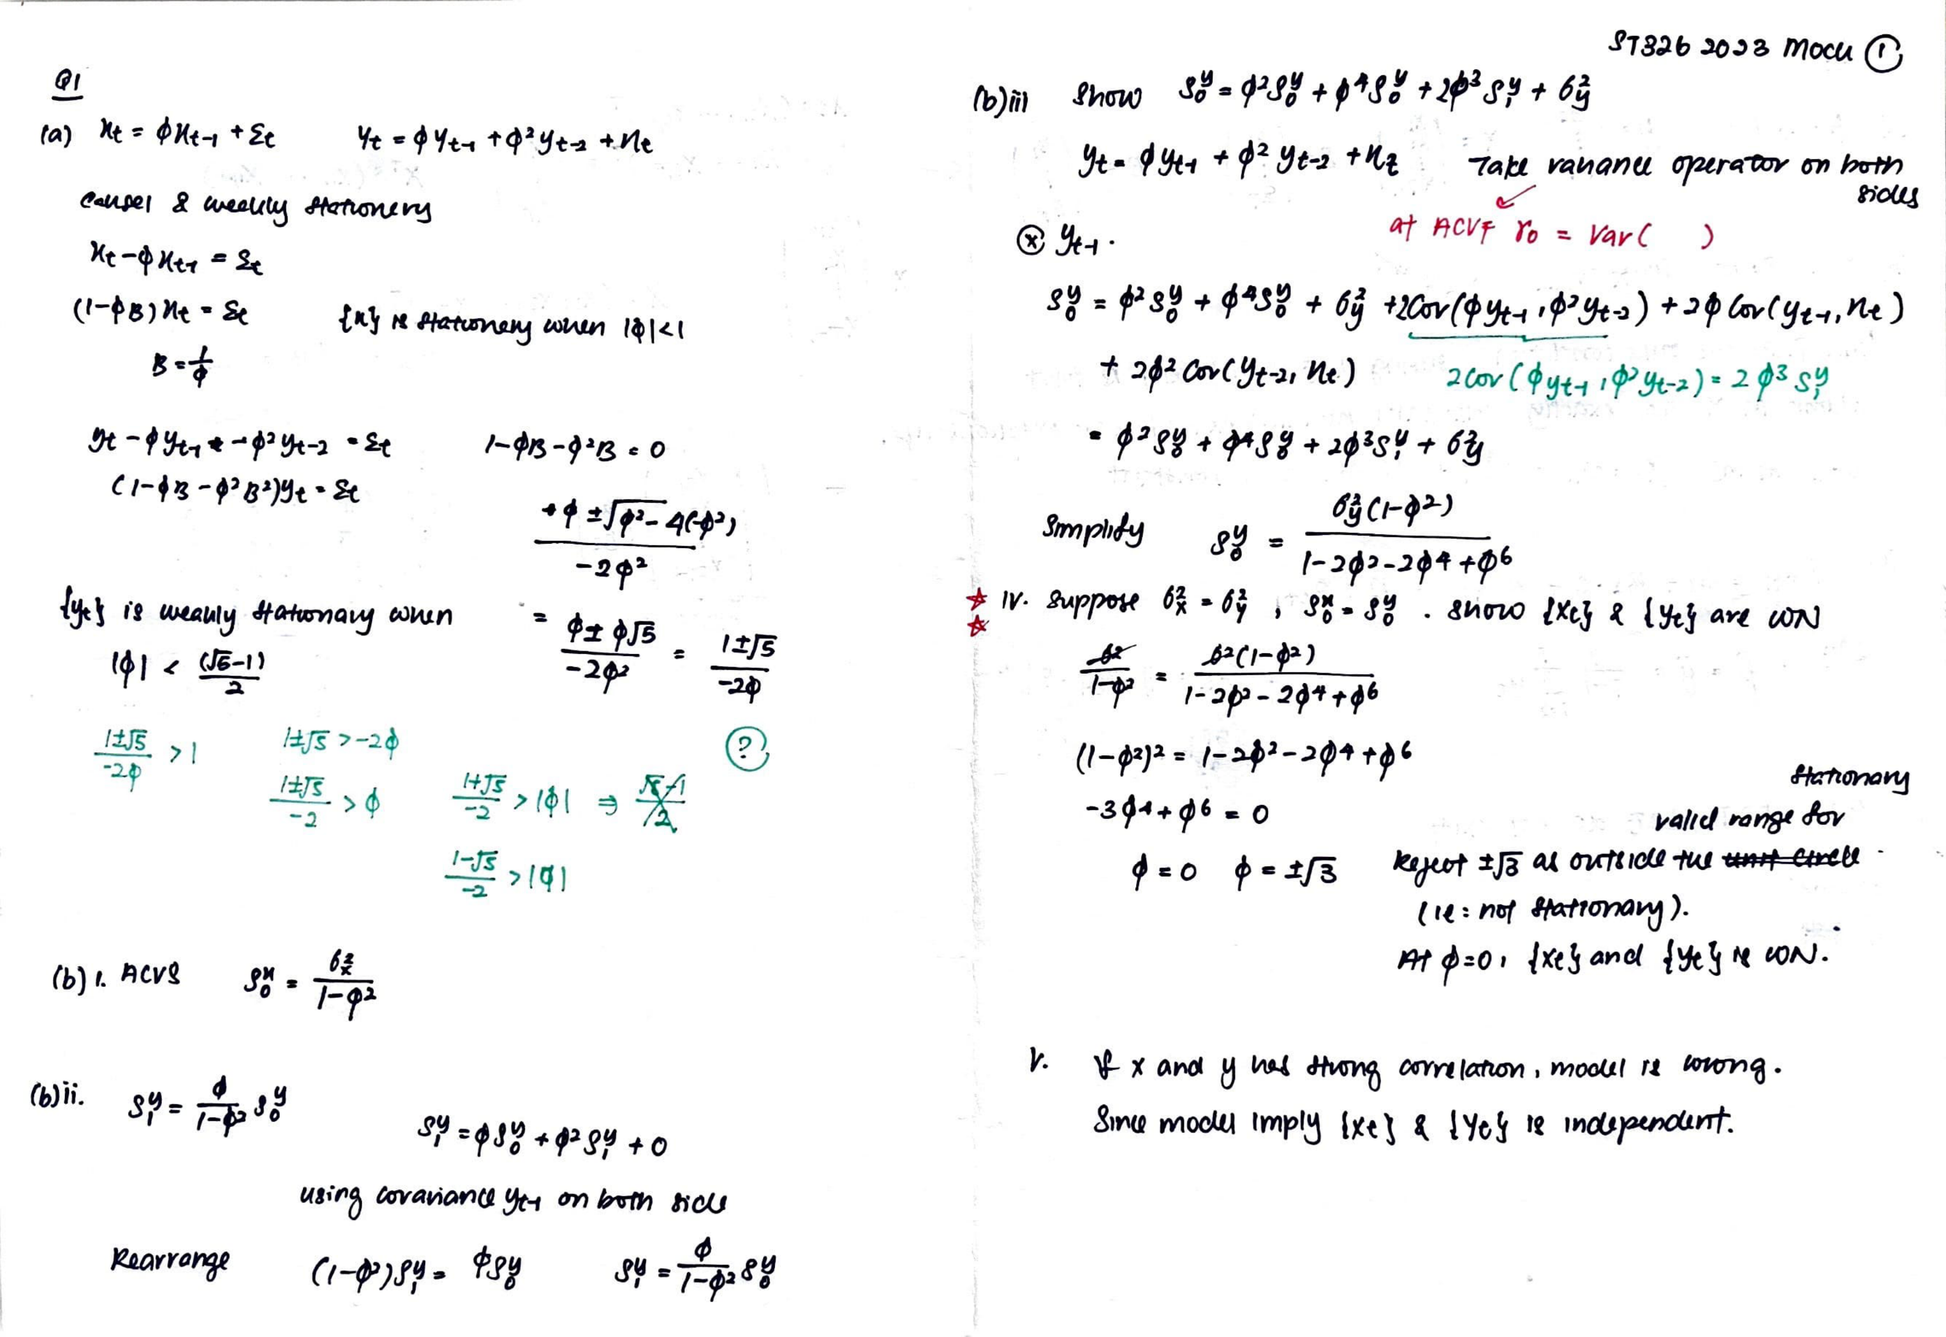 ST326 2023 Mock ①
Q1
(a) xt = ϕxt-1 + Σt      yt = ϕyt-1 + ϕ²yt-2 + nt
causel & weekly stationery
xt - ϕxt-1 = Σt
(1-ϕB)xt = Σt      {x} is stationery when |ϕ|<1
B = 1/ϕ
yt - ϕyt-1 - ϕ²yt-2 = Σt      1-ϕB-ϕ²B = 0
(1-ϕB-ϕ²B²)yt = Σt
+ϕ ± √ϕ²-4(-ϕ²) / -2ϕ²
{yt} is weakly stationary when      = ϕ±ϕ√5 / -2ϕ² = 1±√5 / -2ϕ
|ϕ| < (√5-1)/2
1±√5 / -2ϕ > 1      1±√5 > -2ϕ      ?
1±√5 / -2 > ϕ      1+√5 / -2 > |ϕ| ⇒ √5-1 / 2
1-√5 / -2 > |ϕ|
(b) i. ACVS      S₀ˣ = 6x² / 1-ϕ²
(b) ii. S₁ʸ = ϕ / 1-ϕ² S₀ʸ
S₁ʸ = ϕS₀ʸ + ϕ²S₁ʸ + 0
using covariance yt-1 on both side
Rearrange      (1-ϕ²)S₁ʸ = ϕS₀ʸ      S₁ʸ = ϕ / 1-ϕ² S₀ʸ
(b) iii show S₀ʸ = ϕ²S₀ʸ + ϕ⁴S₀ʸ + 2ϕ³S₁ʸ + 6y²
yt = ϕyt-1 + ϕ²yt-2 + nt      Take variance operator on both
sides
at ACVF r₀ = Var(    )
ⓧ yt-1 .
S₀ʸ = ϕ²S₀ʸ + ϕ⁴S₀ʸ + 6y² + 2Cov(ϕyt-1, ϕ²yt-2) + 2ϕCov(yt-1, nt)
+ 2ϕ²Cov(yt-2, nt)      2Cov(ϕyt-1, ϕ²yt-2) = 2ϕ³S₁ʸ
= ϕ²S₀ʸ + ϕ⁴S₀ʸ + 2ϕ³S₁ʸ + 6y²
Simplify      S₀ʸ = 6y²(1-ϕ²) / 1-2ϕ²-2ϕ⁴+ϕ⁶
☆ iv. Suppose 6x² = 6y², S₀ˣ = S₀ʸ. Show {xt} & {yt} are WN
☆
6² / 1-ϕ² = 6²(1-ϕ²) / 1-2ϕ²-2ϕ⁴+ϕ⁶
(1-ϕ²)² = 1-2ϕ²-2ϕ⁴+ϕ⁶
stationary
-3ϕ⁴+ϕ⁶ = 0      valid range for
ϕ=0  ϕ=±√3      Reject ±√3 as outside the unit circle .
(ie: not stationary).
At ϕ=0, {xt} and {yt} is WN.
V. If x and y has strong correlation, model is wrong.
Since model imply {xt} & {yt} is independent.